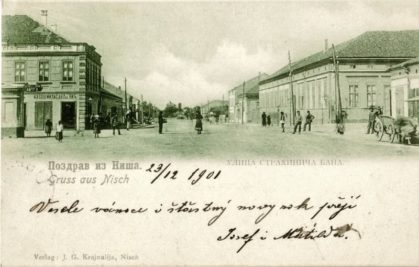 Поздрав из Ниша.
Gruss aus Nisch
23/12 1901
УЛИЦА СТРАХИНИЧА БАНА.
Veselé vánoce i šťastný nový rok přejí
Josef i Matilda.
Verlag : J. G. Krajnalija, Nisch